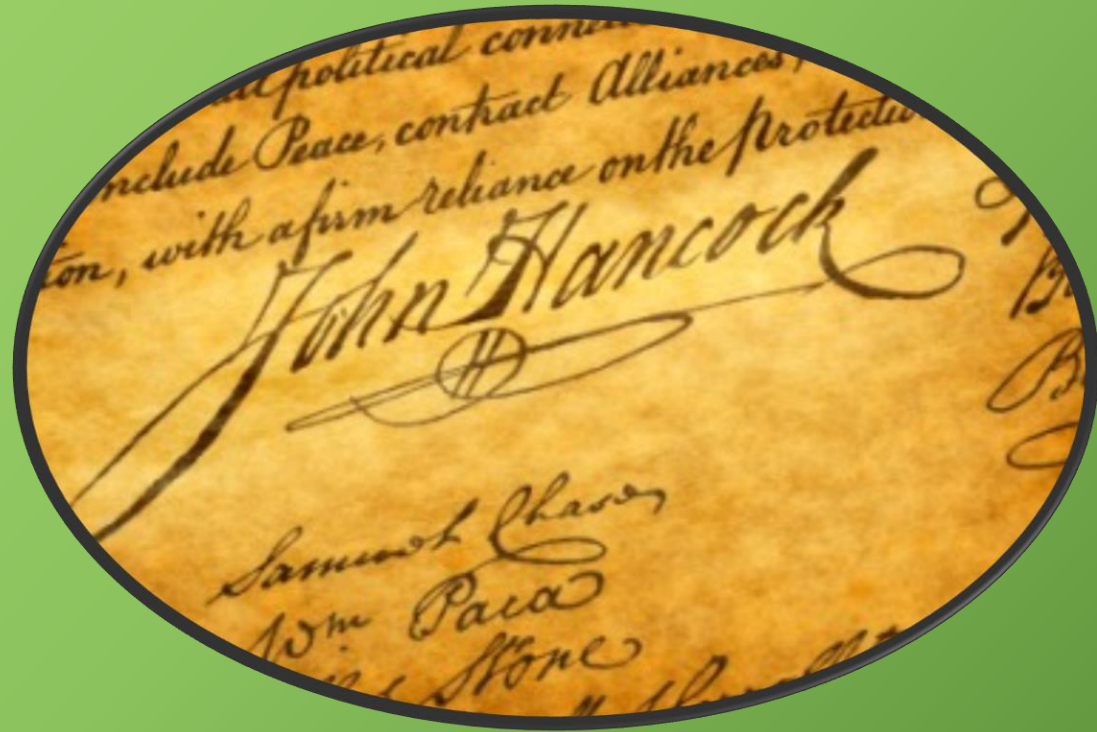 political conne
nclude Peace, contract Alliances,
ion, with a firm reliance on the protectio
John Hancock
Samuel Chase
Wm Paca
Stone